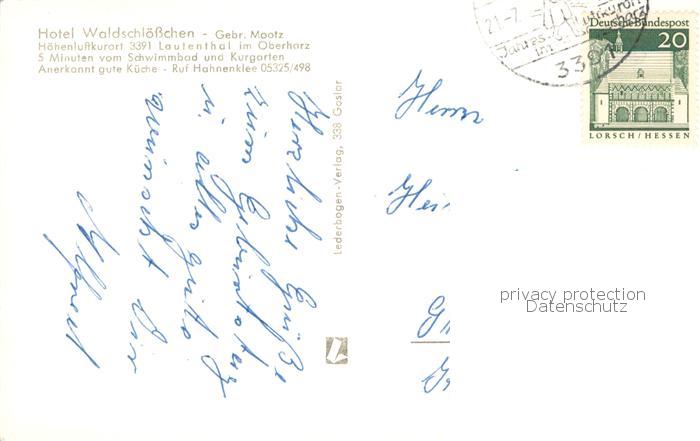 Hotel Waldschlößchen - Gebr. Mootz
Höhenluftkurort 3391 Lautenthal im Oberharz
5 Minuten vom Schwimmbad und Kurgarten
Anerkannt gute Küche - Ruf Hahnenklee 05325/498
Herzliche Grüße
zum Geburtstag
u. alles Gute
wünscht Dir
Alfred
Lederbogen-Verlag, 338 Goslar
21.-7.
luftkurort
Jahres-
im
3391
Deutsche Bundespost
20
LORSCH/HESSEN
Herrn
Hei
G
privacy protection
Datenschutz